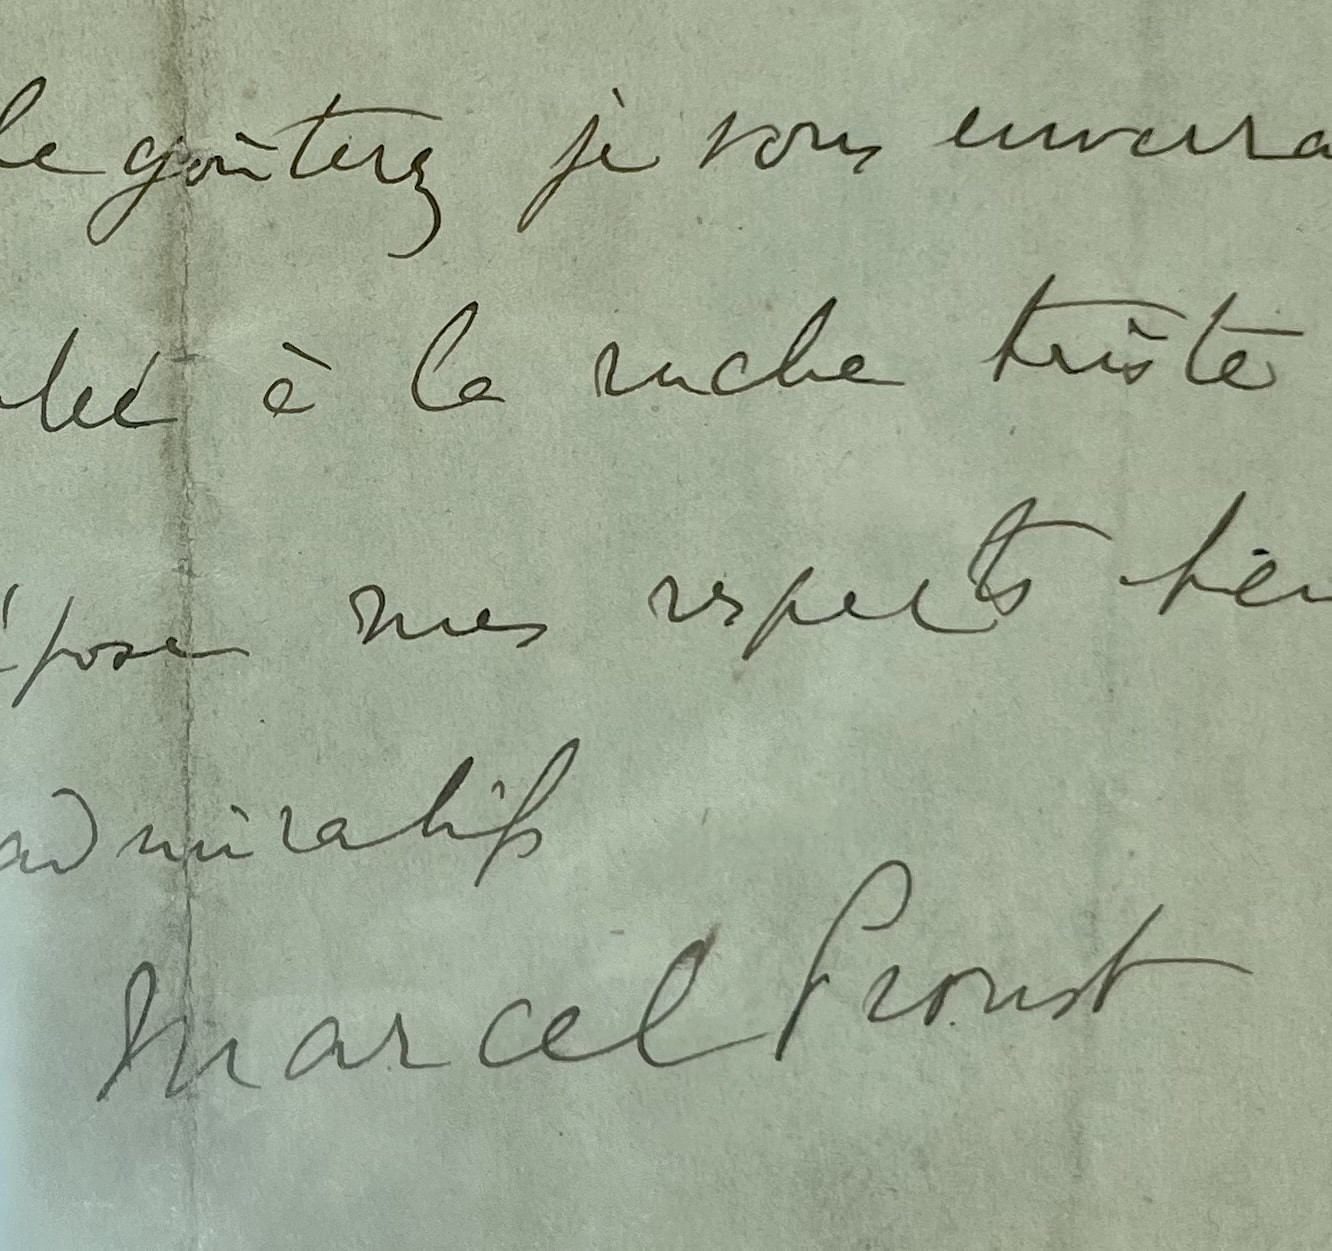 le goûterez je vous enverra
à la ruche triste
épose mes respects bien
admiratifs
Marcel Proust